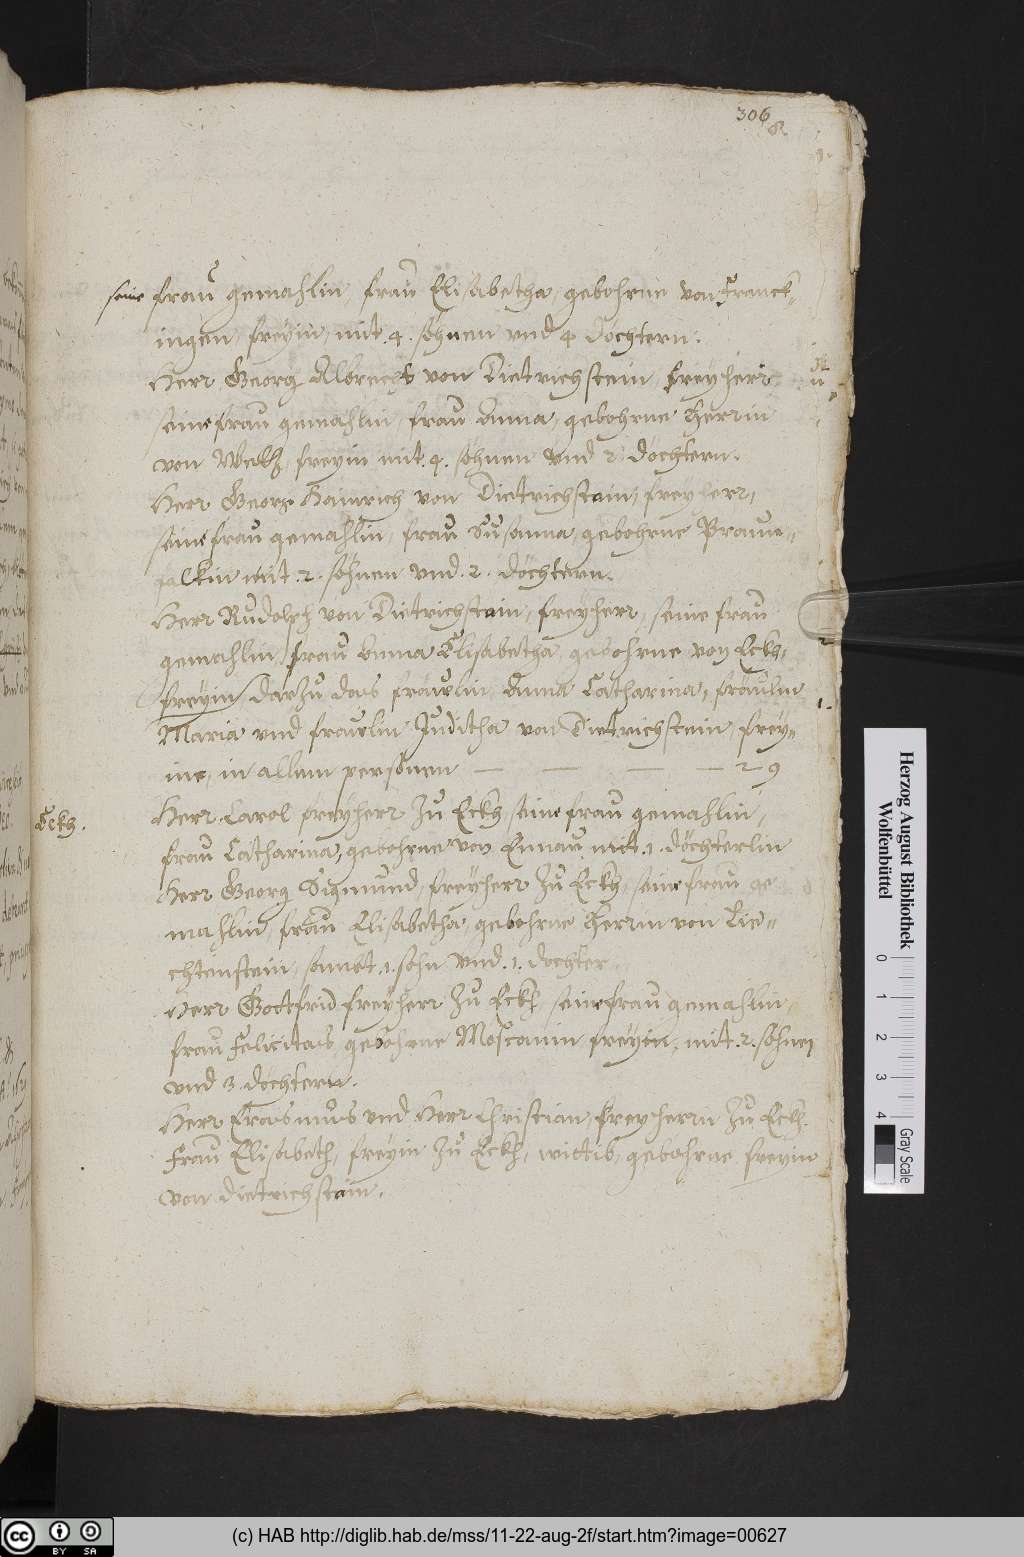 306
seine frau gemahlin, frau Elisabetha, gebohrne von Franck-
ingen, freyin, mit 4. söhnen vnd 4 döchtern.
Herr Georg Albrecht von Dietrichstein, freyherr
seine frau gemahlin, frau Anna, gebohrne Herrin
von freyin mit 4. söhnen vnd 2 döchtern.
Herr Georg Hainrich von Dietrichstain, freyherr,
seine frau gemahlin, frau Susanna, gebohrne Praune-
falkin mit .2. söhnen vnd .2. döchtern.
Herr Rudolph von Dietrichstain, freyherr, seine frau
gemahlin, frau Anna Elisabetha, gebohrne von Eckh,
freyin, darzu das fräwlin Anna Catharina, fräwlin
Maria vnd fräwlin Juditha von Dietrichstein, frey-
ine, in allem personen — — — — 29
Eckh.
Herr Carol freyherr zu Eckh, seine frau gemahlin,
frau Catharina, gebohrne von mit .1. döchterlin
Herr Georg Sigmund, freyherr zu Eckh, seine frau ge
mahlin, frau Elisabetha, gebohrne Herrin von Lie-
chtenstein, sambt .1. sohn vnd .1. dochter.
Herr Gottfrid freyherr zu Eckh, seine frau gemahlin,
frau Felicitas, gebohrne Moscanin freyin, mit .2. söhnen
vnd 3. döchtern.
Herr Erasmus vnd Herr Christian, freyherrn zu Eckh.
Frau Elisabeth, freyin zu Eckh, wittib, gebohrne freyin
von Dietrichstain.
Herzog August Bibliothek
Wolfenbüttel
0 1 2 3 4
Gray Scale
cc BY SA
(c) HAB http://diglib.hab.de/mss/11-22-aug-2f/start.htm?image=00627